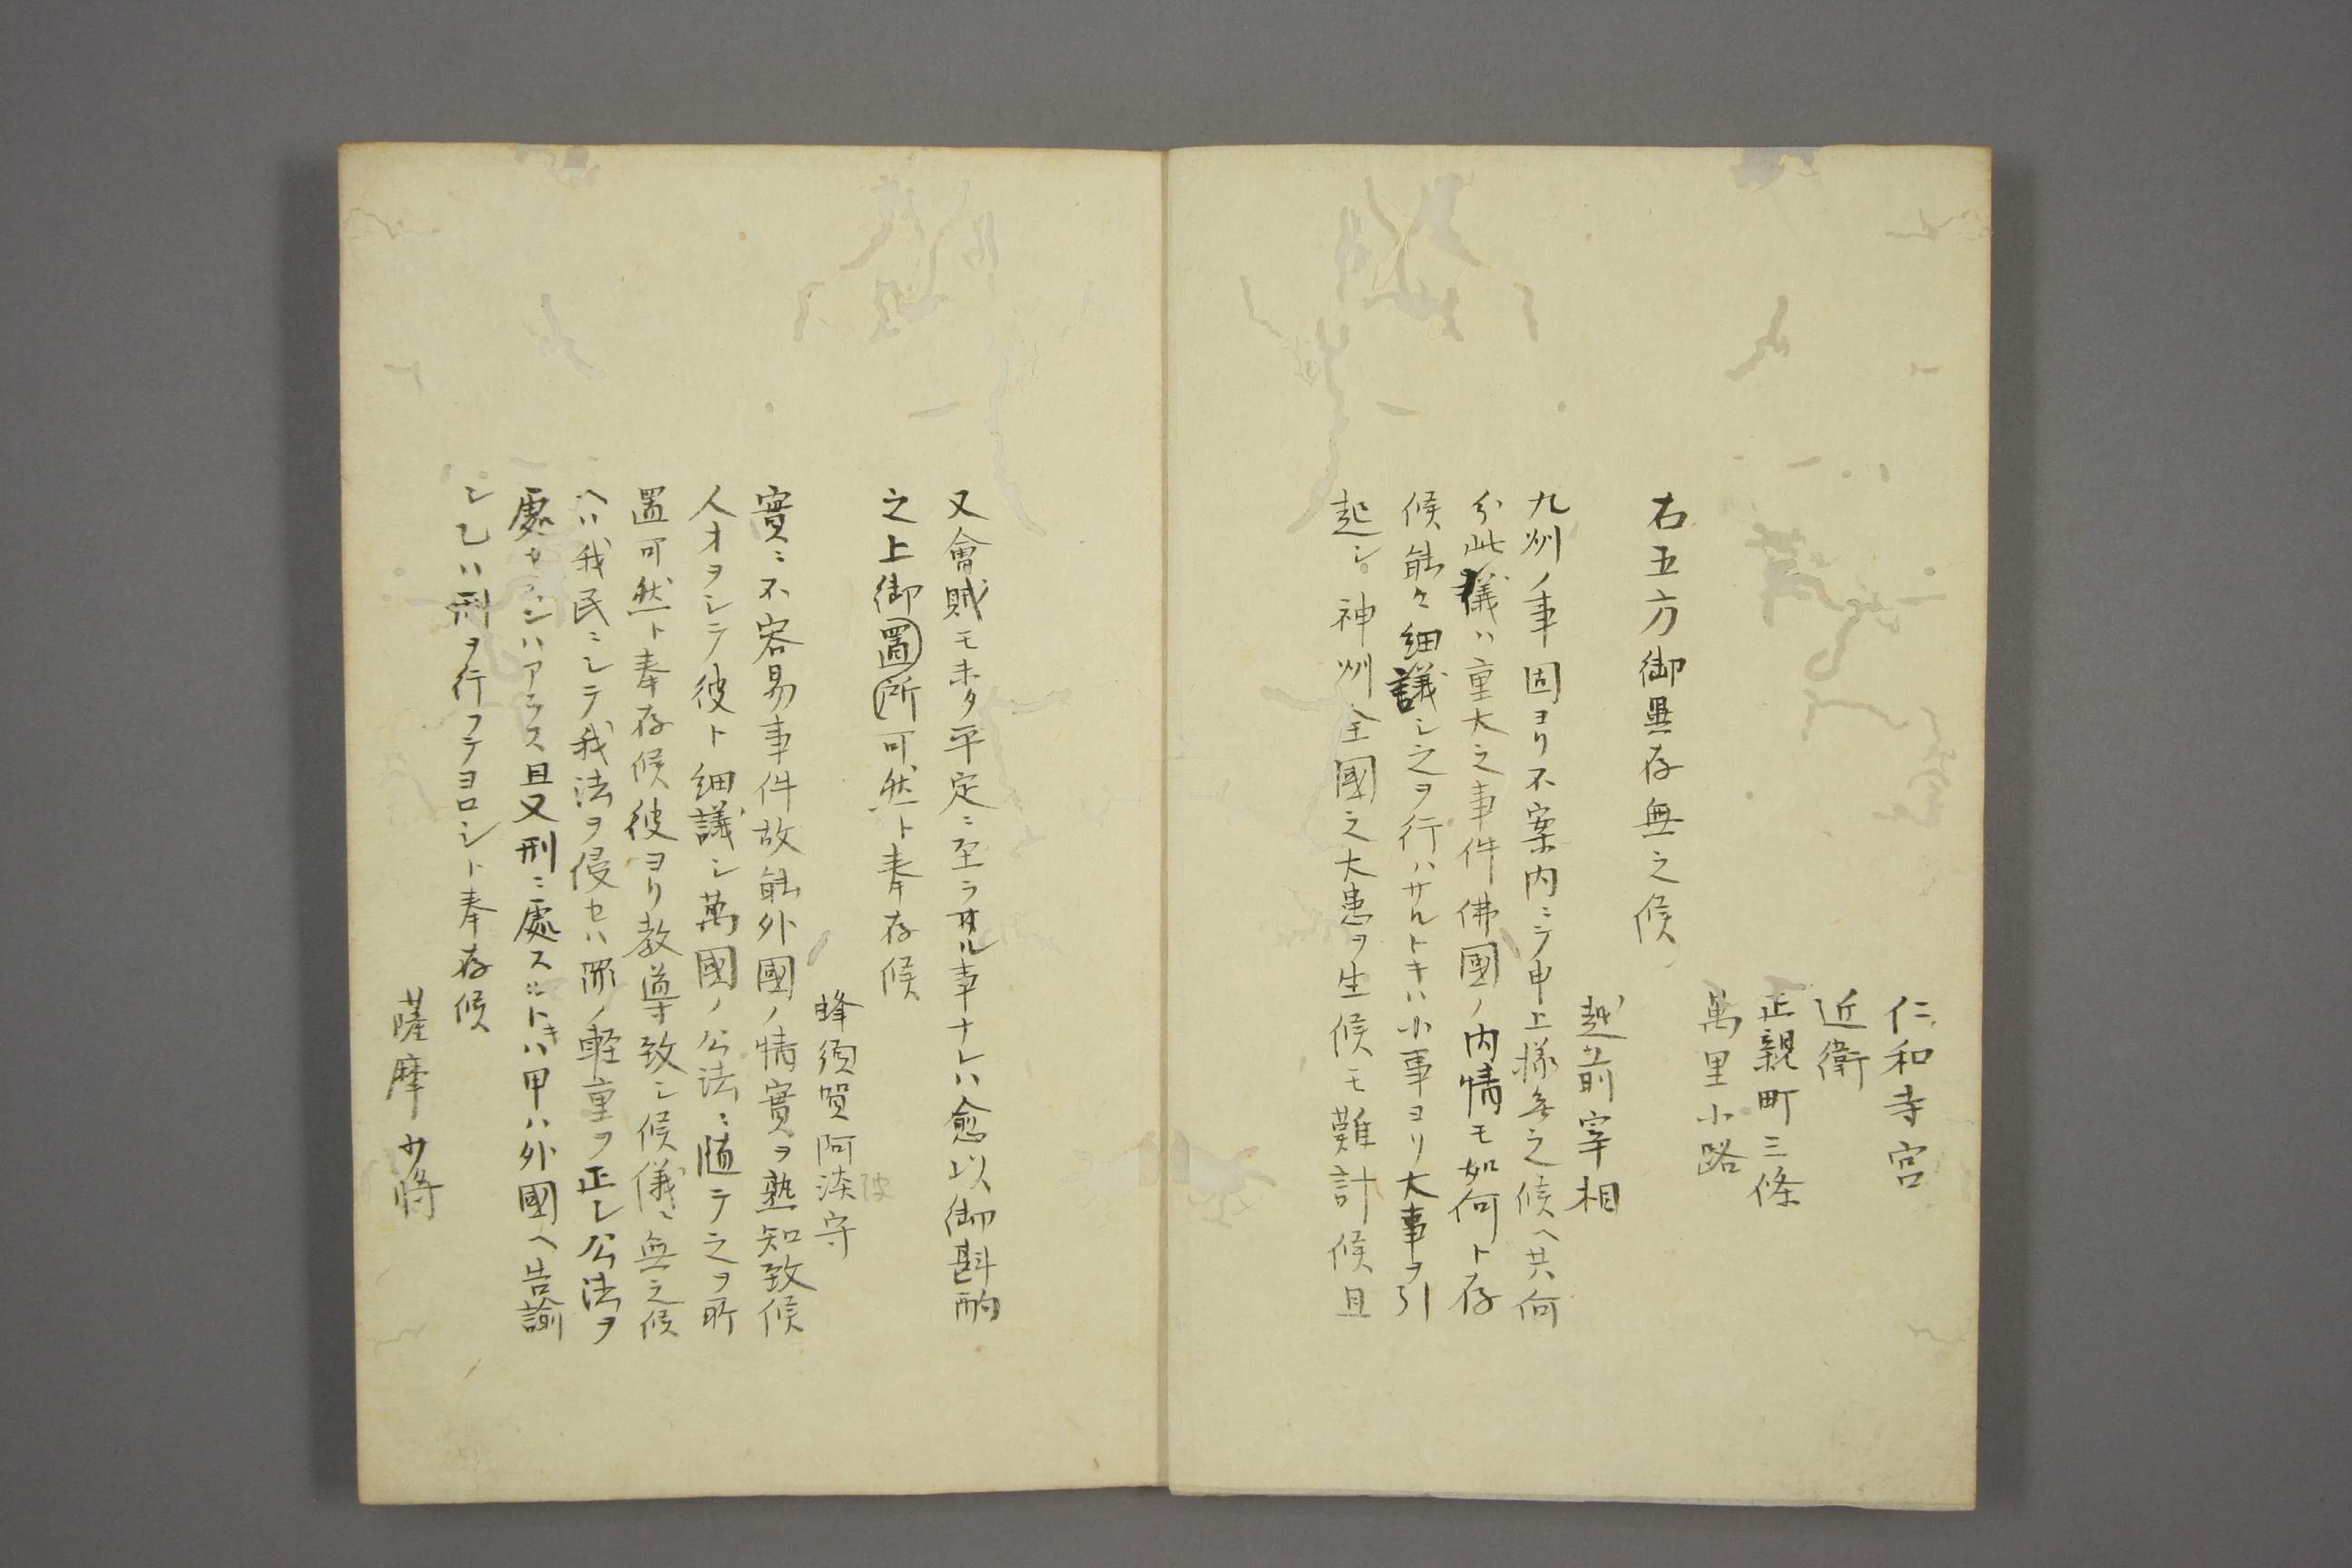 仁和寺宮
近衞
正親町三條
萬里小路
右五方御異存無之候
越前宰相
九州ノ事固ヨリ不案内ニテ申上様無之候ヘ共何
分此儀ハ重大之事件佛國ノ内情モ如何ト存
候能々細議シ之ヲ行ハサルトキハ小事ヨリ大事ヲ引
起シ神州全國之大患ヲ生候モ難計候且
又會賊モ未タ平定ニ至ラサル事ナレハ愈以御斟酌
之上御置所可然ト奉存候
蜂須賀阿波守
實ニ不容易事件故能外國ノ情實ヲ熟知致候
人才ヲシテ彼ト細議シ萬國ノ公法ニ隨テ之ヲ所
置可然ト奉存候彼ヨリ教導致シ候儀ニ無之候
ヘハ我民ニシテ我法ヲ侵セハ罪ノ輕重ヲ正シ公法ヲ
處センハアラス且又刑ニ處スルトキハ甲ハ外國ヘ告諭
シ乙ハ刑ヲ行フテヨロシト奉存候
薩摩少將